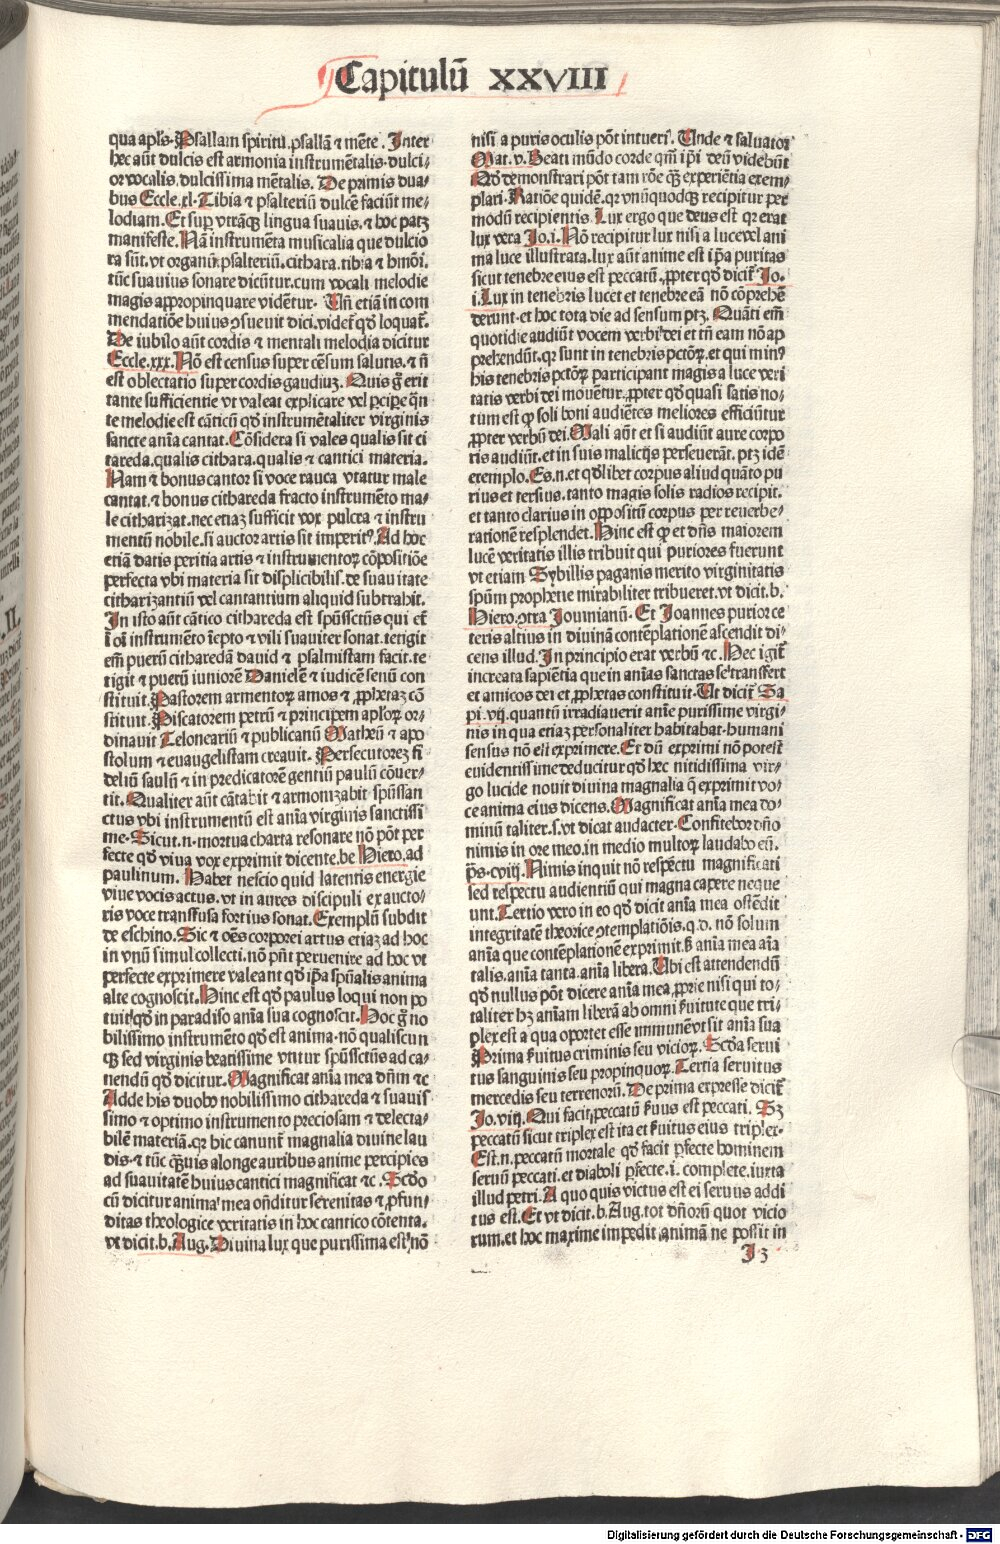 Capitulū XXVIII
qua apl's. Psallam spiritu, psallā ⁊ mēte. Inter
hec aūt dulcis est armonia instrumētalis. dulci-
or vocalis. dulcissima mētalis. De primis dua-
bus Eccle. xl. Tibia ⁊ psalteriū dulcē faciūt me-
lodiam. Et sup vtrāqꝫ lingua suauis. ⁊ hoc patꝫ
manifeste. Nā instrumēta musicalia que dulcio
ra sūt. vt organū. psalteriū. cithara. tibia ⁊ hmōi.
tūc suauius sonare dicūtur. cum vocali melodie
magis appropinquare vidētur. Uñ etiā in com
mendatiōe huius ꝯsueuit dici. videt̄ qd̓ loquat̄.
De iubilo aūt cordis ⁊ mentali melodia dicitur
Eccle. xxx. Nō est census super cēsum salutis. ⁊ ñ
est oblectatio super cordis gaudiuꝫ. Quis g̊ erit
tante sufficientie vt valeat explicare vel ꝑcipe q̄n
te melodie est cāticū qd̓ instrumētaliter virginis
sancte aīa cantat. Cōsidera si vales qualis sit ci
tareda. qualis cithara. qualis ⁊ cantici materia.
Nam ⁊ bonus cantor si voce rauca vtatur male
cantat. ⁊ bonus cithareda fracto instrumēto ma-
le citharizat. nec etiaꝫ sufficit vox pulcra ⁊ instru
mentū nobile. si auctor artis sit imperitꝰ. Ad hoc
etiā datis peritia artis ⁊ instrumentoꝝ cōpositiōe
perfecta vbi materia sit displicibilis. de suauitate
citharizantiū vel cantantium aliquid subtrahit.
In isto aūt cātico cithareda est spūssctūs qui et̄
ī oī instrumēto īepto ⁊ vili suauiter sonat. tetigit
em̄ puerū citharedā dauid ⁊ psalmistam facit. te
tigit ⁊ puerū iuniorē Danielē ⁊ iudicē senū con
stituit. Pastorem armentoꝝ amos ⁊ ꝓphetaꝫ cō
stituit. Piscatorem petrū ⁊ principem apl'oꝝ or-
dinauit Teloneariū ⁊ publicanū Matheū ⁊ apo
stolum ⁊ euangelistam creauit. Persecutoreꝫ fi
deliū saulū ⁊ in predicatorē gentiū paulū cōuer-
tit. Qualiter aūt cātabit ⁊ armonizabit spūssan
ctus vbi instrumentū est anīa virginis sanctissi
me. Sicut. n. mortua charta resonare nō pōt per
fecte qd̓ viua vox exprimit dicente. be. Hiero. ad
paulinum. Habet nescio quid latentis energie
viue vocis actus. vt in aures discipuli ex aucto-
ris voce transfusa fortius sonat. Exemplū subdit
de eschino. Sic ⁊ oēs corporei artus etiaꝫ ad hoc
in vnū simul collecti. nō pn̄t peruenire ad hoc vt
perfecte exprimere valeant qd̓ ip̄a spūalis anima
alte cognoscit. Hinc est qd̓ paulus loqui non po
tuit qd̓ in paradiso anīa sua cognoscit. Hoc g̊ no
bilissimo instrumēto qd̓ est anima. nō qualiscun
qꝫ sed virginis beatissime vtitur spūssctūs ad ca-
nendū qd̓ dicitur. Magnificat anīa mea dn̄m ⁊c
Adde his duobꝰ nobilissimo cithareda ⁊ suauis
simo ⁊ optimo instrumento preciosam ⁊ delecta-
bilē materiā. qꝛ hic canunt̄ magnalia diuine lau
dis. ⁊ tūc q̄ꝫuis a longe auribus anime percipies
ad suauitatē huius cantici magnificat ⁊c. Scd̓o
cū dicitur anima mea on̄ditur serenitas ⁊ ꝓfun-
ditas theologice veritatis in hoc cantico cōtenta.
vt dicit. b. Aug. Diuina lux que purissima est nō
nisi a puris oculis pōt intueri. Unde ⁊ saluator
Mat. v. Beati mūdo corde qm̄ ip̄i deū videbūt
Qd̓ demonstrari pōt tam rōe qꝫ experiētia exem-
plari. Ratiōe quidē. qꝛ vnūquodqꝫ recipitur per
modū recipientis. Lux ergo que deus est qꝛ erat
lux vera Io. i. Nō recipitur lux nisi a luce vel ani
ma luce illustrata. lux aūt anime est ip̄a puritas
sicut tenebre eius est peccatū, ꝓpter qd̓ dicit̄ Io.
i. Lux in tenebris lucet et tenebre eā nō cōprehē
derunt. et hoc tota die ad sensum ptꝫ. Quāti em̄
quotidie audiūt vocem verbi dei et tn̄ eam nō ap
prehendūt. qꝛ sunt in tenebris pctōꝝ. et qui minꝰ
his tenebris pctōꝝ participant magis a luce veri
tatis verbi dei mouētur. ꝓpter qd̓ quasi satis no-
tum est ꝙ soli boni audiētes meliores efficiūtur
ꝓpter verbū dei. Mali aūt et si audiūt aure corpo
ris audiūt. et in suis malicijs perseuerāt. ptꝫ idē
exemplo. Es. n. et qd̓libet corpus aliud quāto pu
rius et tersius. tanto magis solis radios recipit.
et tanto clarius in oppositū corpus per reuerbe-
rationē resplendet. Hinc est ꝙ et dn̄s maiorem
lucē veritatis illis tribuit qui puriores fuerunt
vt etiam Sybillis paganis merito virginitatis
spūm prophetie mirabiliter tribueret. vt dicit. b.
Hiero. ꝯtra Jouinianū. Et Joannes purior ce
teris altius in diuinā contēplationē ascendit di-
cens illud. In principio erat verbū ⁊c. Hec igit̄
increata sapiētia que in anīas sanctas se transfert
et amicos dei et ꝓphetas constituit. Ut dicit̄ Sa
pi. vij. quantū irradiauerit aīe purissime virgi-
nis in qua etiaꝫ personaliter habitabat. humani
sensus nō est exprimere. Et dū exprimi nō potest
euidentissime deducitur qd̓ hec nitidissima vir-
go lucide nouit diuina magnalia q̄ exprimit vo-
ce anima eius dicens. Magnificat anīa mea do-
minū taliter. s. vt dicat audacter. Confitebor dn̄o
nimis in ore meo. in medio multoꝝ laudabo eū.
ps. cviij. Nimis inquit nō respectu magnificati
sed respectu audientiū qui magna capere neque
unt. Tertio vero in eo qd̓ dicit anīa mea ostēdit
integritatē theorice ꝯtemplatiōis. q. d. nō solum
anīa que contēplationē exprimit. s̄ anīa mea aīa
talis. anīa tanta. anīa libera. Ubi est attendendū
qd̓ nullus pōt dicere anīa mea ꝓprie nisi qui to-
taliter hꝫ aniam liberā ab omni ẜuitute que tri-
plex est a qua oportet esse immunē vt sit anīa sua
Prima ẜuitus criminis seu vicioꝝ. Scd̓a serui
tus sanguinis seu propinquoꝝ. Tertia seruitus
mercedis seu terrenorū. De prima expresse dicit̄
Io. viij. Qui facit peccatū ẜuus est peccati. Sꝫ
peccatū sicut triplex est ita et ẜuitus eius triplex.
Est. n. peccatū mortale qd̓ facit ꝑfecte hominem
seruū peccati. et diaboli ꝑfecte. i. complete. iuxta
illud petri. A quo quis victus est ei seruus addi
tus est. Et vt dicit. b. Aug. tot dn̄orū quot vicio
rum. et hoc maxime impedit animā ne possit in
I 3
Digitalisierung gefördert durch die Deutsche Forschungsgemeinschaft - DFG